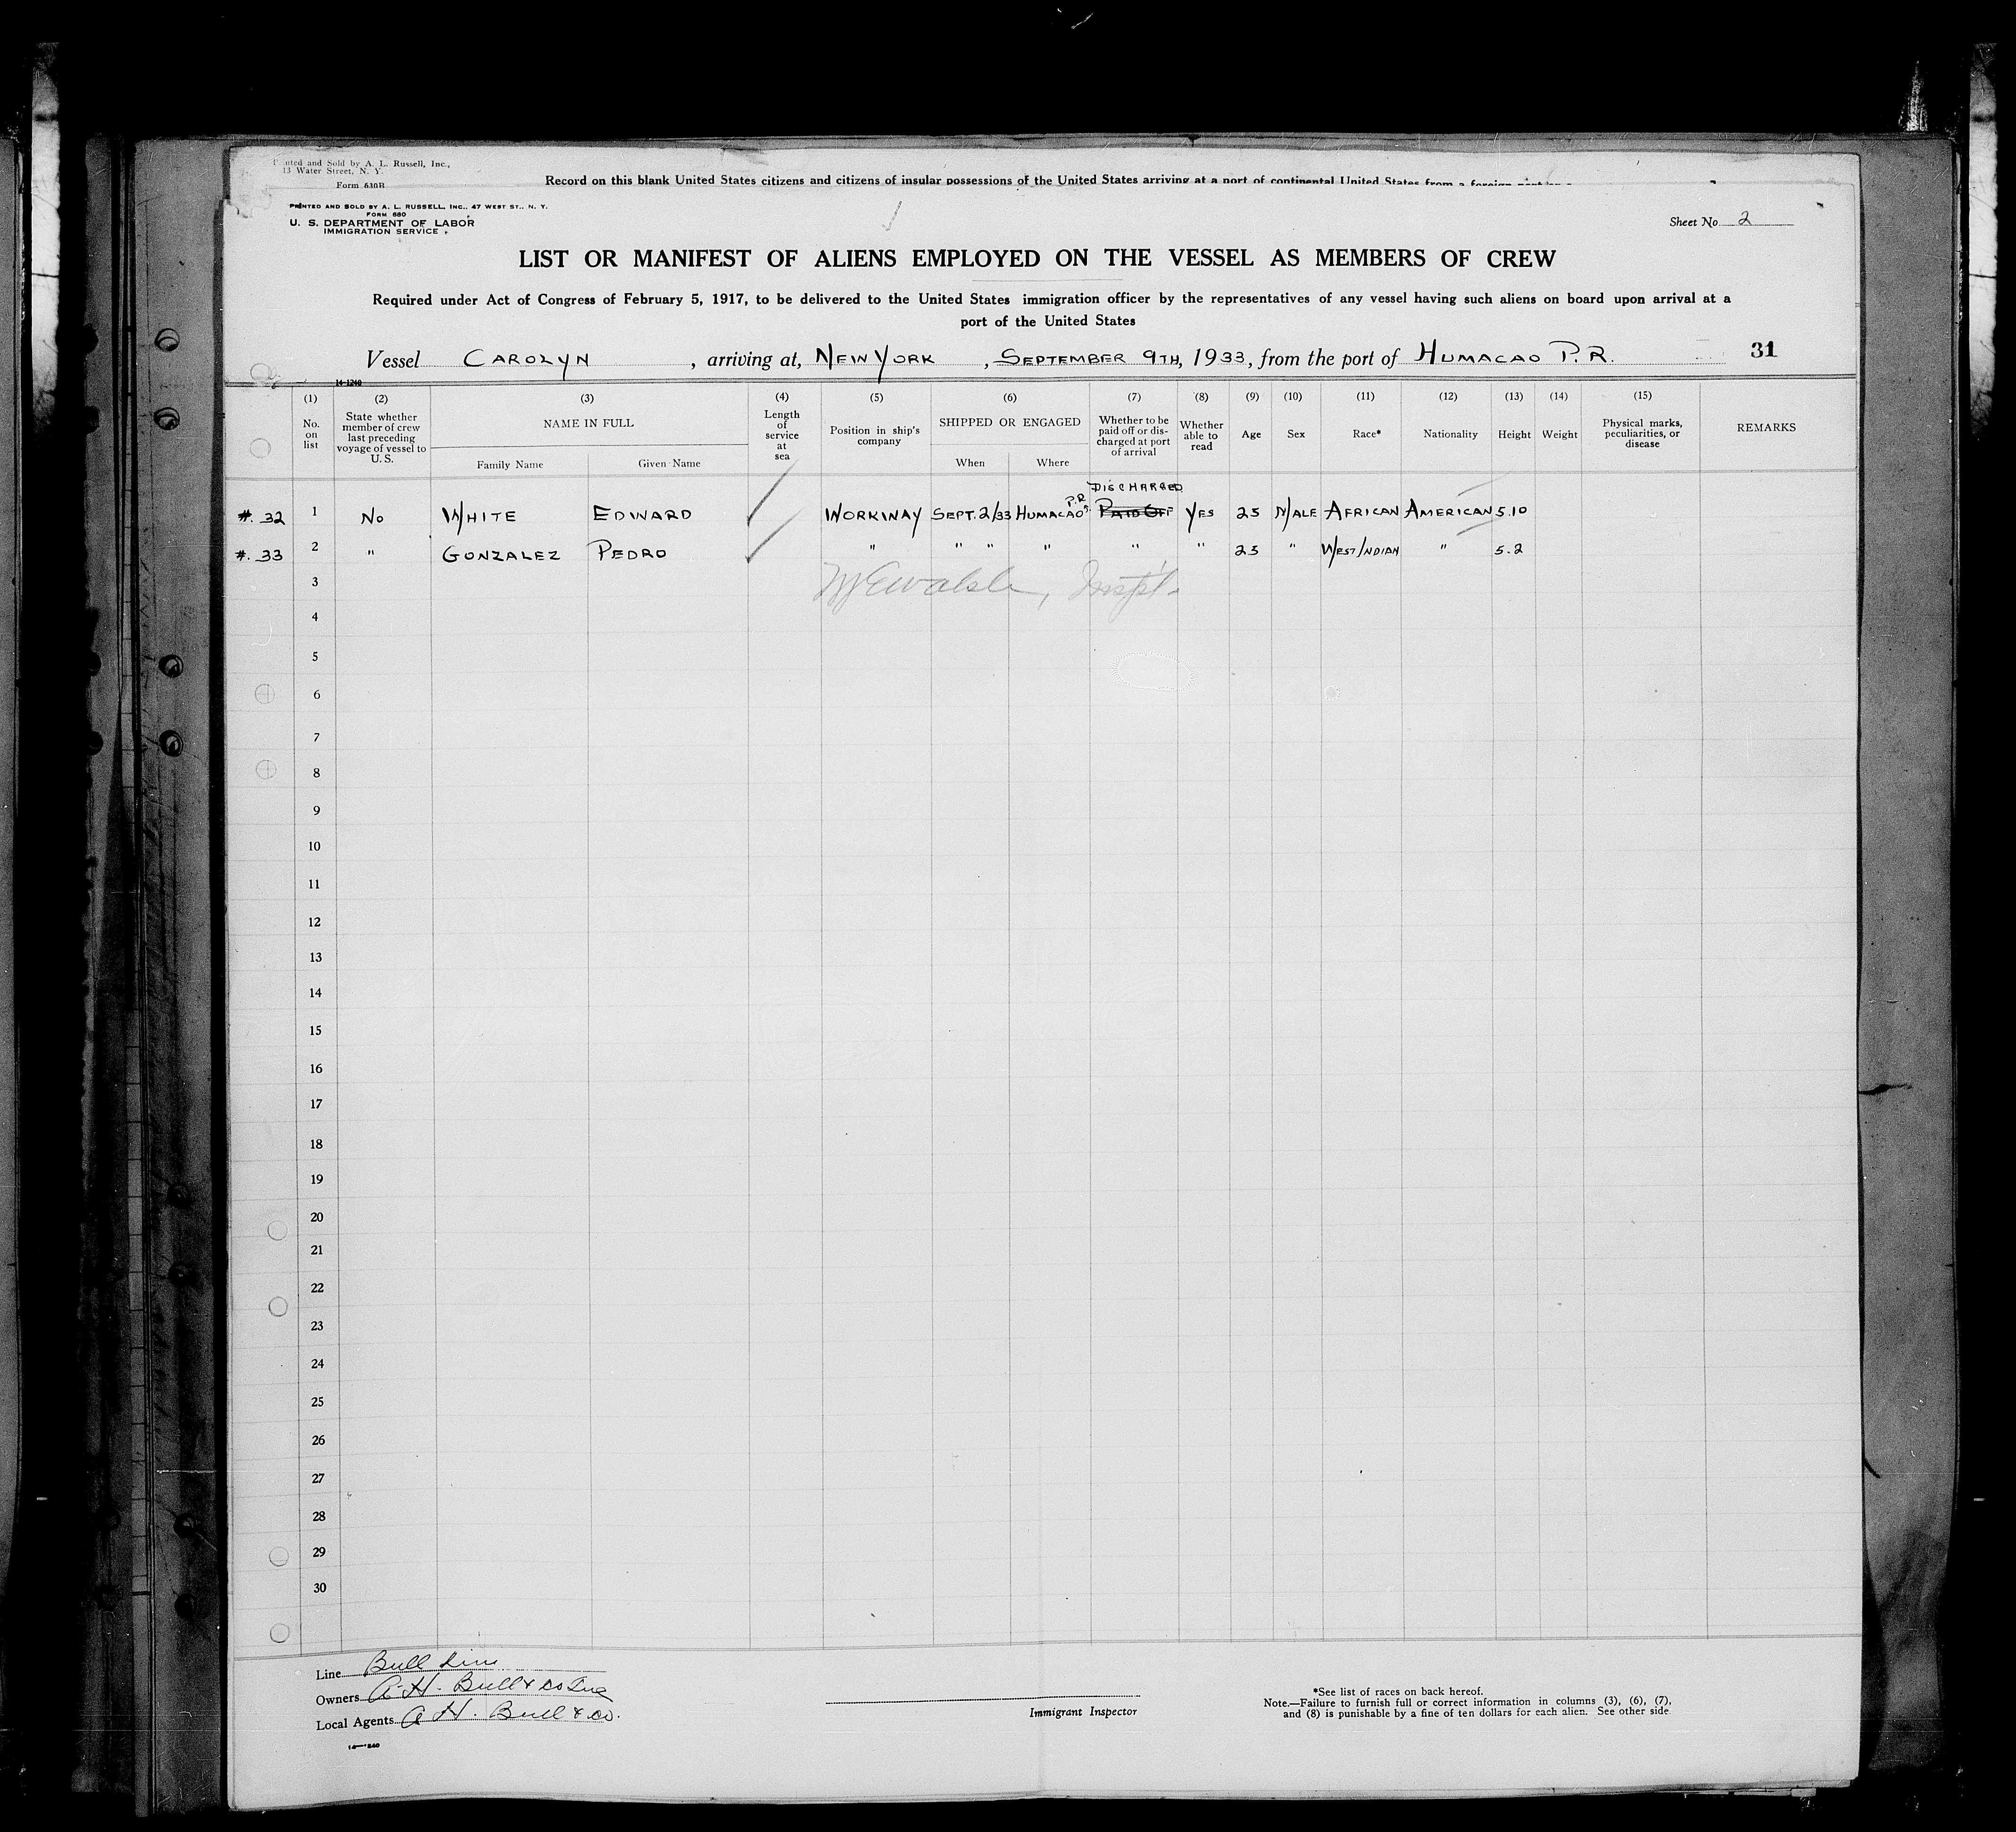 Printed and Sold by A. L. Russell, Inc.,
13 Water Street, N. Y.
Form 630B
Record on this blank United States citizens and citizens of insular possessions of the United States arriving at a port of continental United States from a foreign
PRINTED AND SOLD BY A. L. RUSSELL, INC., 47 WEST ST., N. Y.
FORM 680
U. S. DEPARTMENT OF LABOR
IMMIGRATION SERVICE
Sheet No. 2
LIST OR MANIFEST OF ALIENS EMPLOYED ON THE VESSEL AS MEMBERS OF CREW
Required under Act of Congress of February 5, 1917, to be delivered to the United States immigration officer by the representatives of any vessel having such aliens on board upon arrival at a
port of the United States
Vessel CAROLYN, arriving at, NEW YORK, SEPTEMBER 9TH, 1933, from the port of HUMACAO P.R. 31
14-1240
(1) No. on list
(2) State whether member of crew last preceding voyage of vessel to U. S.
(3) NAME IN FULL Family Name Given Name
(4) Length of service at sea
(5) Position in ship's company
(6) SHIPPED OR ENGAGED When Where
(7) Whether to be paid off or discharged at port of arrival
(8) Whether able to read
(9) Age
(10) Sex
(11) Race*
(12) Nationality
(13) Height
(14) Weight
(15) Physical marks, peculiarities, or disease
REMARKS
DISCHARGED
#. 32 1 No WHITE EDWARD WORKWAY SEPT. 2/33 HUMACAO P.R. PAID OFF YES 25 MALE AFRICAN AMERICAN 5.10
#. 33 2 " GONZALEZ PEDRO " " " " " " 25 " WEST INDIAN " 5.2
3
4
5
6
7
8
9
10
11
12
13
14
15
16
17
18
19
20
21
22
23
24
25
26
27
28
29
30
Line Bull Line
Owners A. H. Bull & Co Inc
Local Agents A H. Bull & Co.
Immigrant Inspector
*See list of races on back hereof.
Note.—Failure to furnish full or correct information in columns (3), (6), (7),
and (8) is punishable by a fine of ten dollars for each alien. See other side.